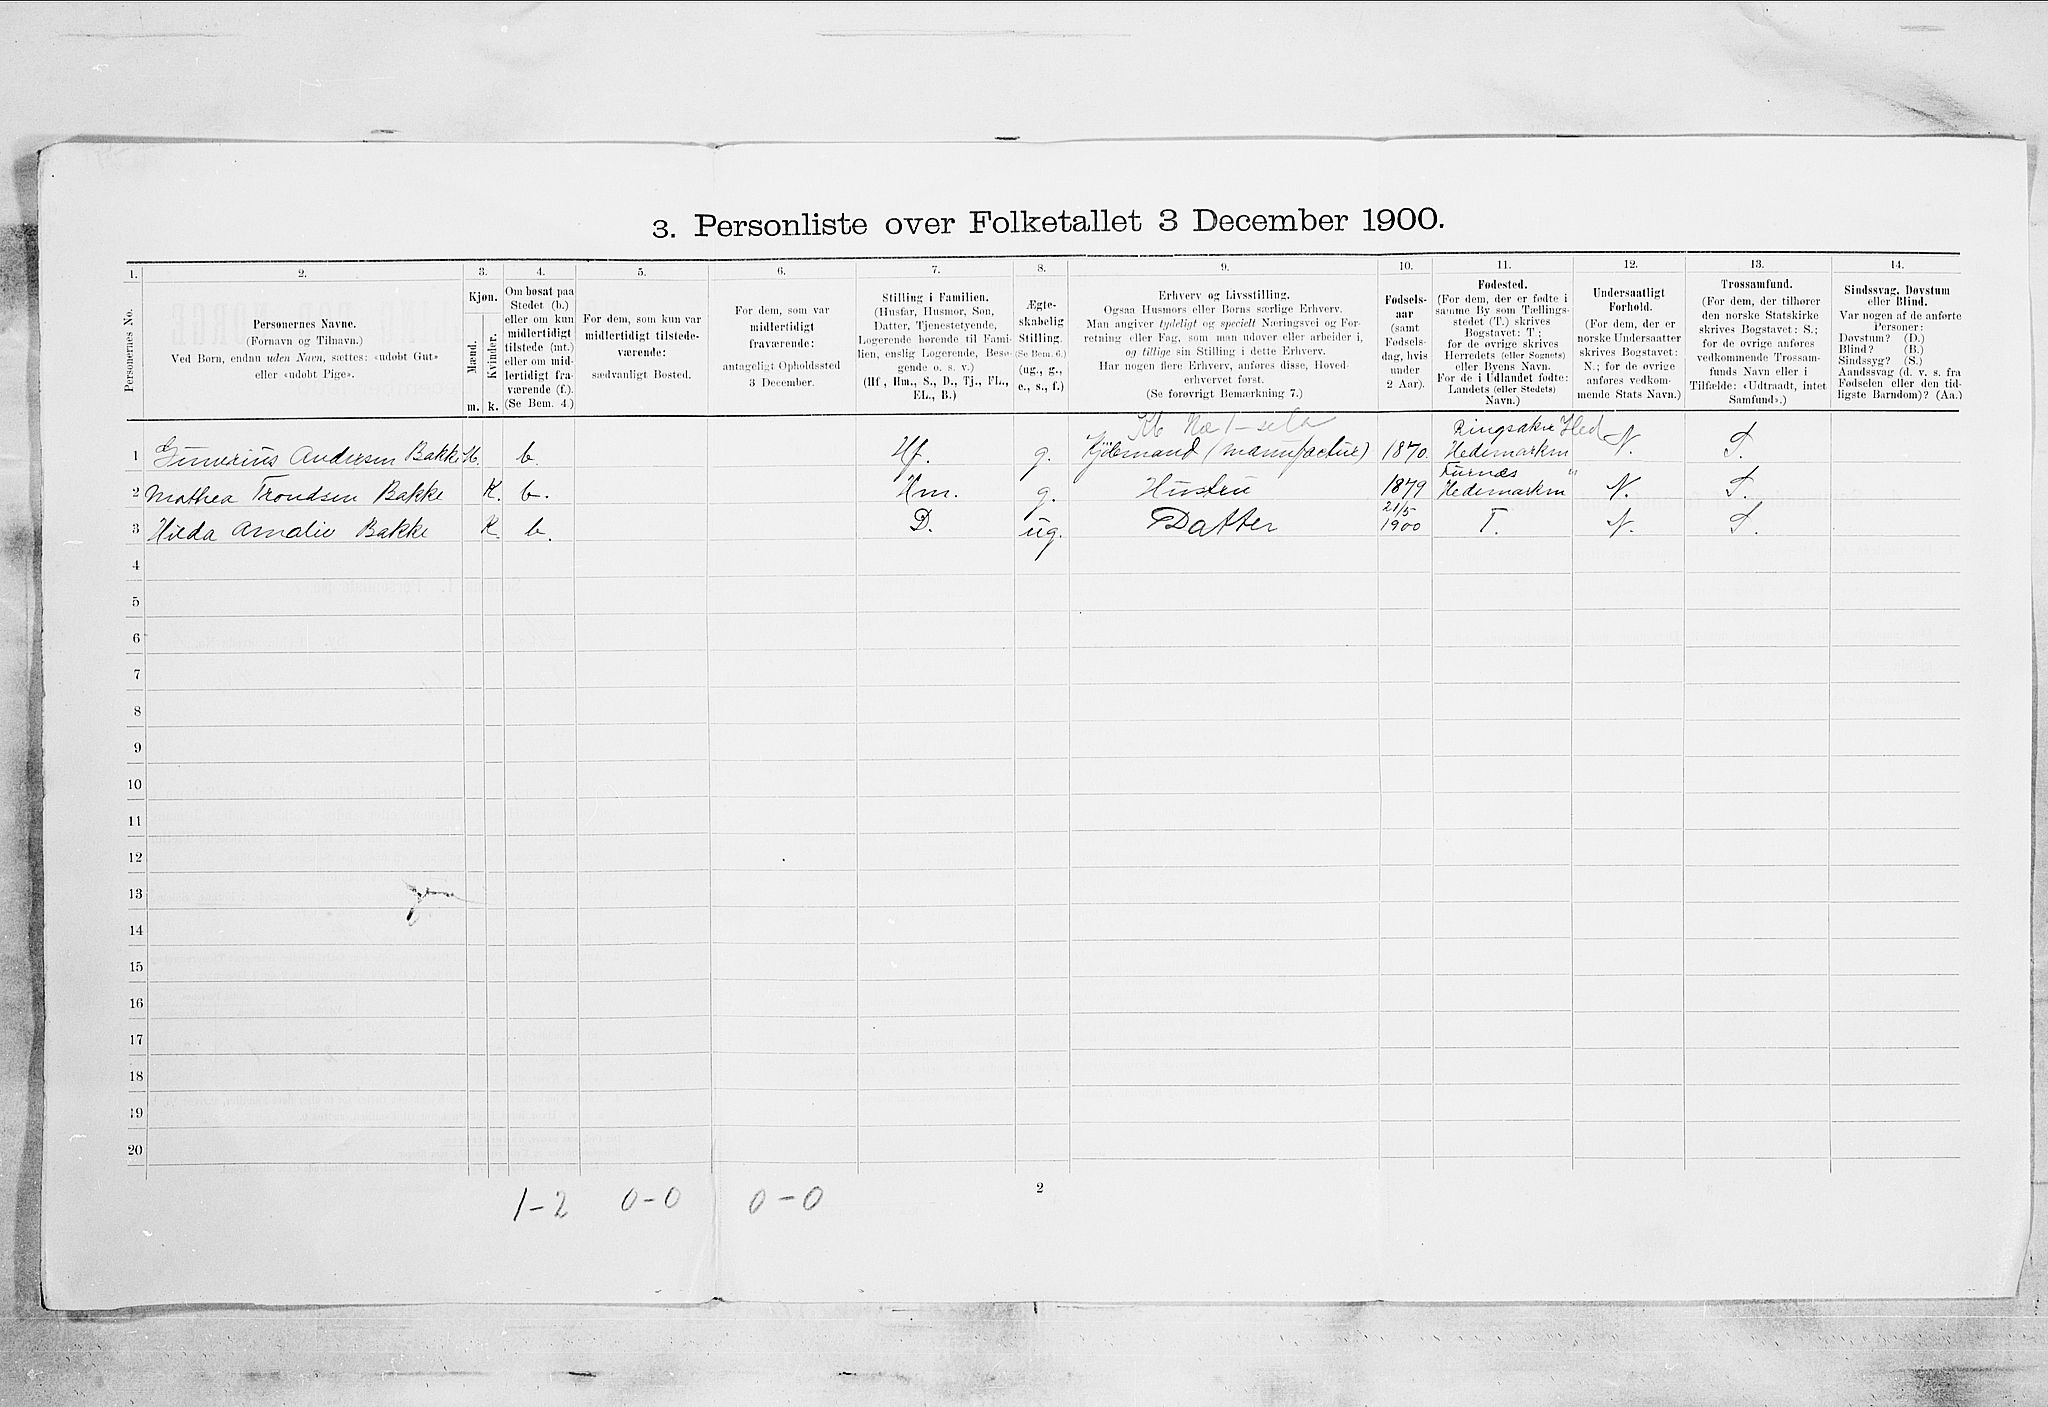 3. Personliste over Folketallet 3 December 1900.
1.
2.
3.
4.
5.
6.
7.
8.
9.
10.
11.
12.
13.
14.
Personernes No.
Personernes Navne.
(Fornavn og Tilnavn.)
Ved Børn, endnu uden Navn, sættes: «udøbt Gut»
eller «udøbt Pige».
Kjøn.
Mænd.
Kvinder.
m.
k.
Om bosat paa
Stedet (b.)
eller om kun
midlertidigt
tilstede (mt.)
eller om mid-
lertidigt fra-
værende (f.).
(Se Bem. 4.)
For dem, som kun var
midlertidigt tilstede-
værende:
sædvanligt Bosted.
For dem, som var
midlertidigt
fraværende:
antageligt Opholdssted
3 December.
Stilling i Familien.
(Husfar, Husmor, Søn,
Datter, Tjenestetyende,
Logerende hørende til Fami-
lien, enslig Logerende, Besø-
gende o. s. v.)
(Hf., Hm., S., D., Tj., FL.,
EL., B.)
Ægte-
skabelig
Stilling.
(Se Bem. 6.)
(ug., g.,
e., s., f.)
Erhverv og Livsstilling.
Ogsaa Husmors eller Børns særlige Erhverv.
Man angiver tydeligt og specielt Næringsvei og For-
retning eller Fag, som man udøver eller arbeider i,
og tillige sin Stilling i dette Erhverv.
Har nogen flere Erhverv, anføres disse, Hoved-
erhvervet først.
(Se forøvrigt Bemærkning 7.)
Fødsels-
aar
(samt
Fødsels-
dag, hvis
under
2 Aar).
Fødested.
(For dem, der er fødte i
samme By som Tællings-
stedet (T.) skrives
Bogstavet: T.;
for de øvrige skrives
Herredets (eller Sognets)
eller Byens Navn.
For de i Udlandet fødte:
Landets (eller Stedets)
Navn.)
Undersaatligt
Forhold.
(For dem, der er
norske Undersaatter
skrives Bogstavet:
N.; for de øvrige
anføres vedkom-
mende Stats Navn.)
Trossamfund.
(For dem, der tilhører
den norske Statskirke
skrives Bogstavet: S.;
for de øvrige anføres
vedkommende Trossam-
funds Navn eller i
Tilfælde: «Udtraadt, intet
Samfund».)
Sindssvag, Døvstum
eller Blind.
Var nogen af de anførte
Personer:
Døvstum? (D.)
Blind? (B.)
Sindssyg? (S.)
Aandssvag (d. v. s. fra
Fødselen eller den tid-
ligste Barndom)? (Aa.)
Ringsaker Hed
1 Gunerius Andersen Bakke M. b. Hf. g. Kjøbmand (manufactur) 1870. Hedemarken N. S.
Furnæs "
2 Mathea Trondsen Bakke K. b. Hm. g. Hustru 1879 Hedemarken N. S.
21/5
3 Hilda Amalie Bakke K. b. D. ug. Datter 1900 T. N. S.
4
5
6
7
8
9
10
11
12
13
14
15
16
17
18
19
20
1-2 0-0 0-0
2